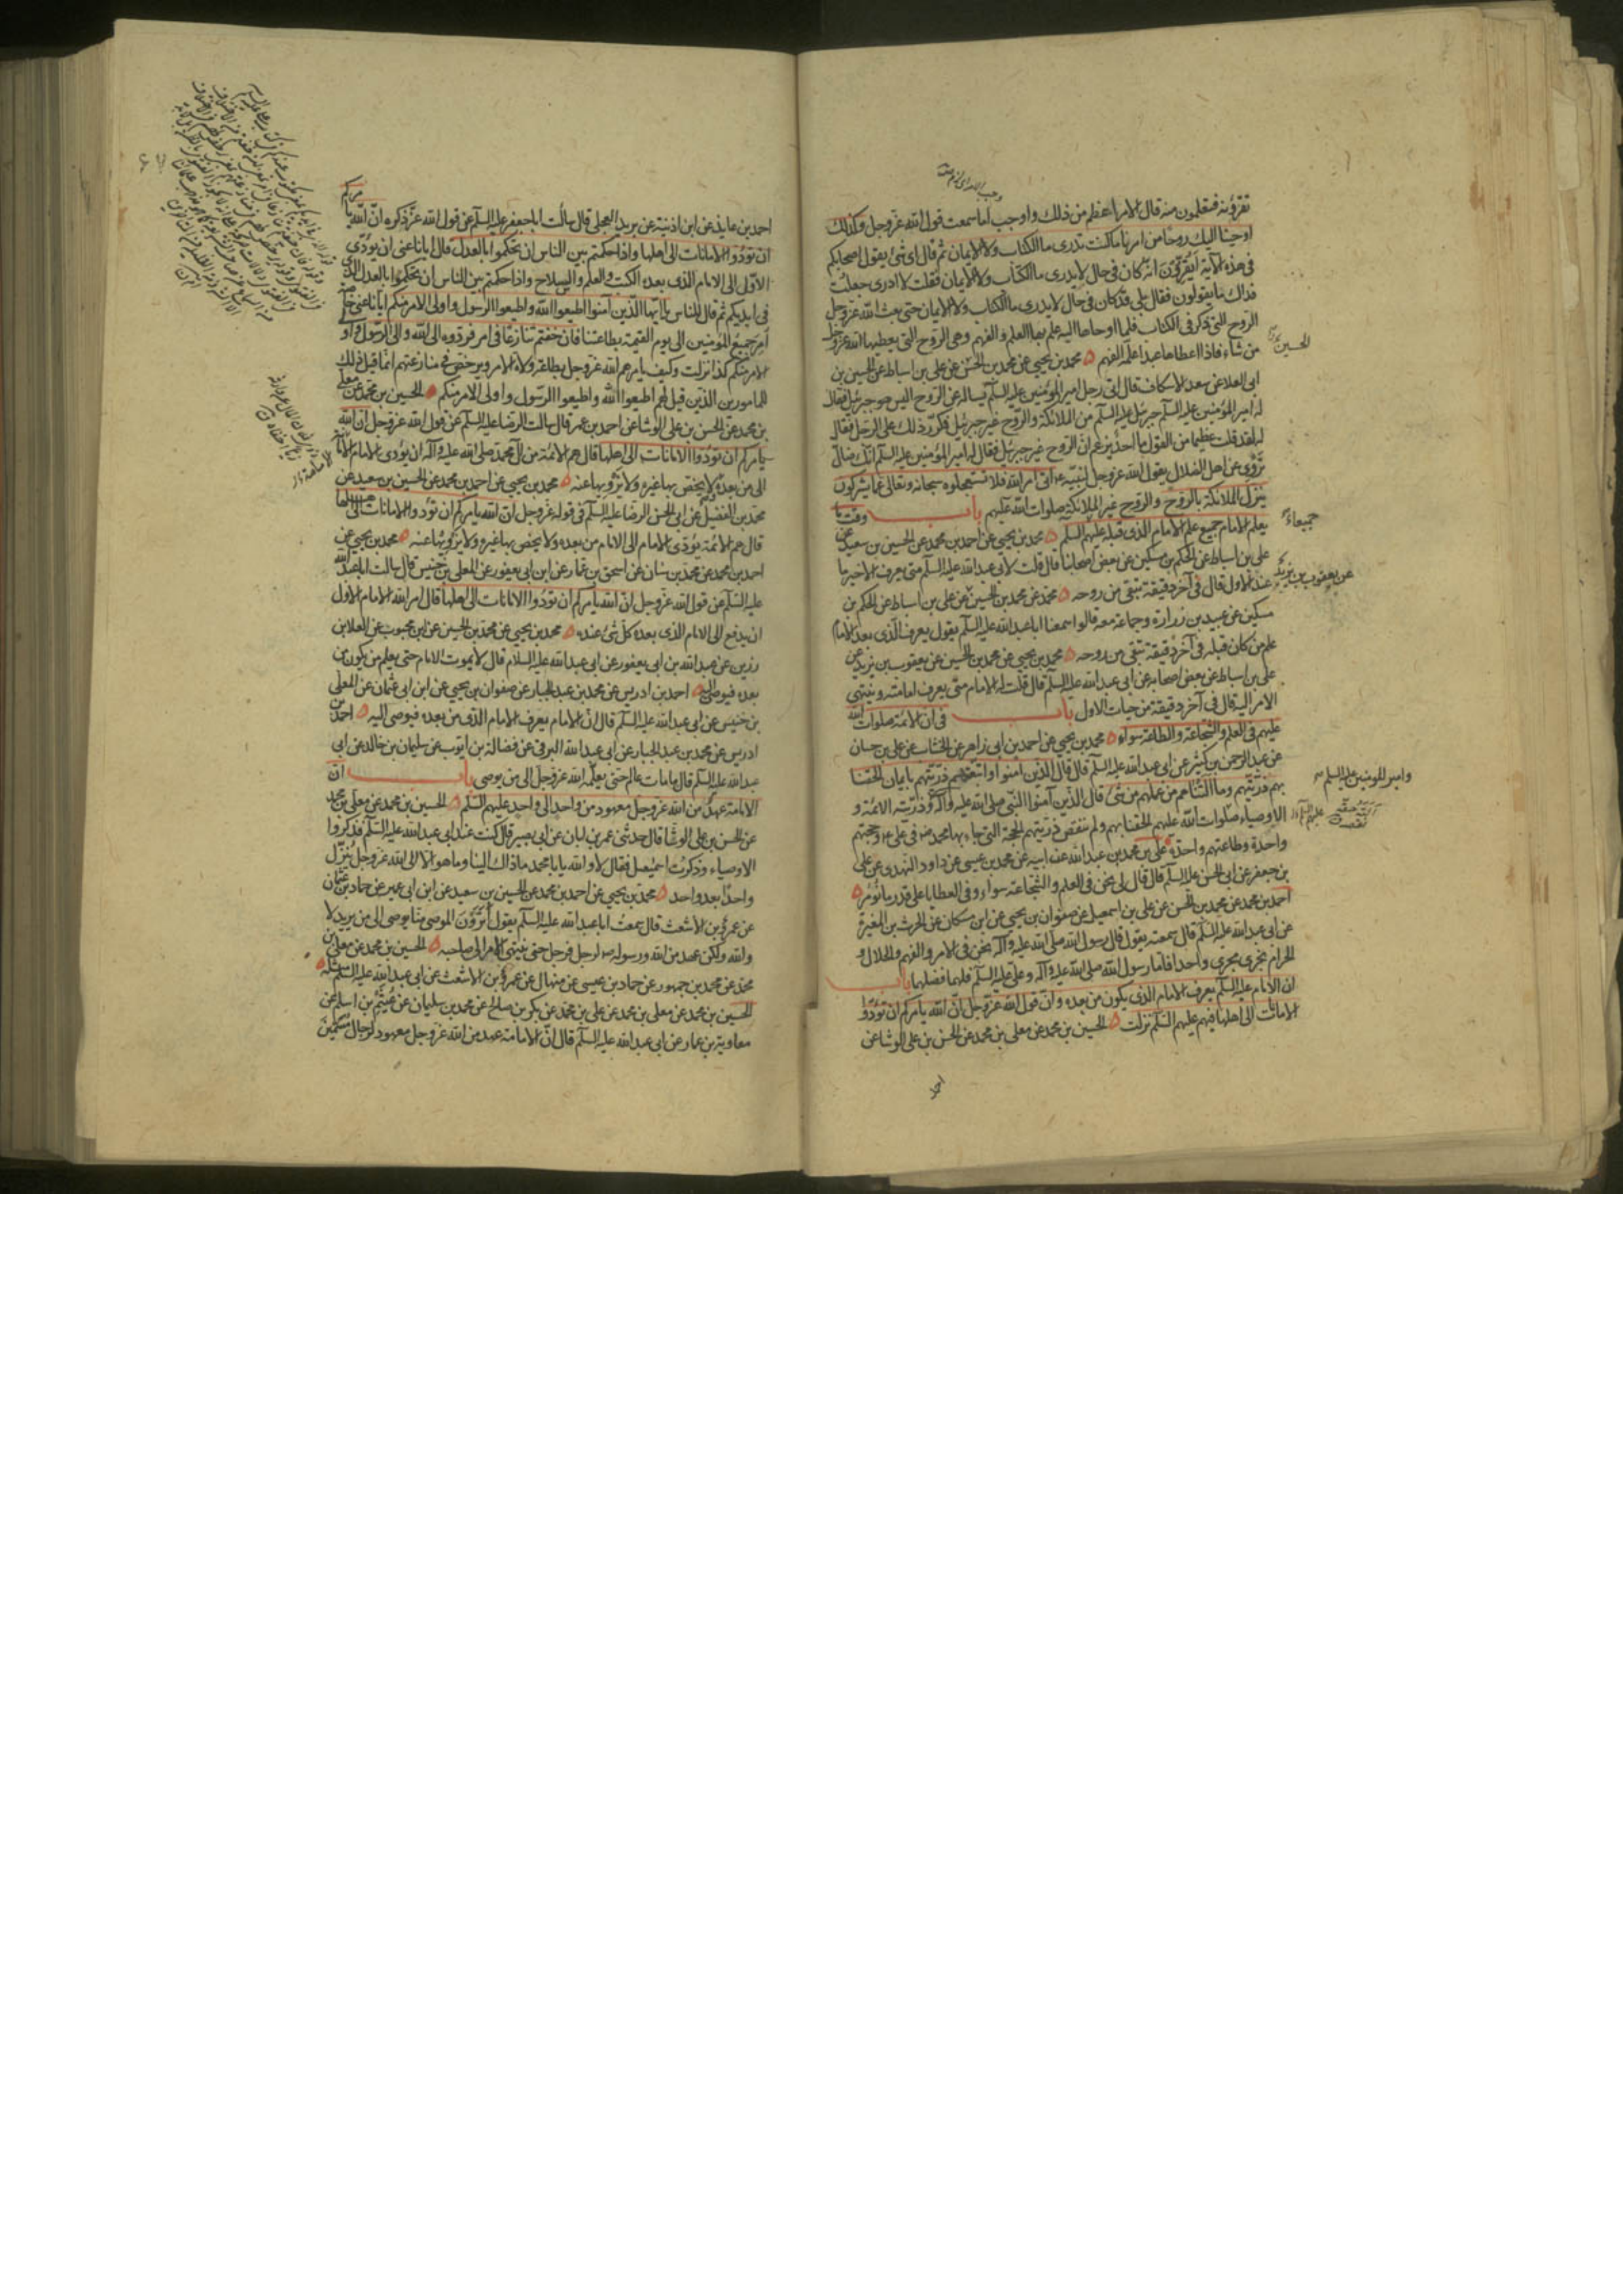 تقرؤنه فتعلمون منه قال الامر اعظم من ذلك واوجب اما سمعت قول الله عز وجل وكذلك
اوحينا اليك روحا من امرنا ما كنت تدرى ما الكتاب ولا الايمان ثم قال اى شئ يقول اصحابكم
فى هذه الآية ايقرؤن انه كان فى حال لا يدرى ما الكتاب ولا الايمان فقلت لا ادرى جعلت
فداك ما يقولون فقال بلى قد كان فى حال لا يدرى ما الكتاب ولا الايمان حتى بعث الله عز وجل
الروح التى ذكر فى الكتاب فلما اوحاها اليه علم بها العلم والفهم وهى الروح التى يعطيها الله عز وجل
من شاء فاذا اعطاها عبدا علمه الفهم محمد بن يحيى عن محمد بن الحسن عن على بن اسباط عن الحسين بن
الحسين
ابى العلا عن سعد الاسكاف قال اتى رجل امير المؤمنين عليه السلم يساله عن الروح اليس هو جبرئيل فقال
له امير المؤمنين عليه السلم جبرئيل عليه السلم من الملائكة والروح غير جبرئيل فكرر ذلك على الرجل فقال
له لقد قلت عظيما من القول ما احد يزعم ان الروح غير جبرئيل فقال له امير المؤمنين عليه السلم انك ضال
تروى عن اهل الضلال يقول الله عز وجل لنبيه اتى امر الله فلا تستعجلوه سبحانه وتعالى عما يشركون
ينزل الملائكة بالروح والروح غير الملائكة صلوات الله عليهم باب وقت ما
يعلم الامام جميع علم الامام الذى قبله عليهم السلم محمد بن يحيى عن احمد بن محمد عن الحسين بن سعيد عن
جميعا
على بن اسباط عن الحكم بن مسكين عن بعض اصحابنا قال قلت لابى عبد الله عليه السلم متى يعرف الاخير ما
عند الاول قال فى آخر دقيقة تبقى من روحه محمد عن محمد بن الحسين عن على بن اسباط عن الحكم بن
عن يعقوب بن يزيد
مسكين عن عبيد بن زرارة وجماعة معه قالوا سمعنا ابا عبد الله عليه السلم يقول يعرف الذى بعد الامام
علم من كان قبله فى آخر دقيقة تبقى من روحه محمد بن يحيى عن محمد بن الحسين عن يعقوب بن يزيد عن
على بن اسباط عن بعض اصحابه عن ابى عبد الله عليه السلم قال قلت له الامام متى يعرف امامته وينتهى
الامر اليه قال فى آخر دقيقة من حيات الاول باب فى ان الائمة صلوات الله
عليهم فى العلم والشجاعة والطاعة سواء محمد بن يحيى عن احمد بن ابى زاهر عن الخشاب عن على بن حسان
عن عبد الرحمن بن كثير عن ابى عبد الله عليه السلم قال قال الذين آمنوا واتبعتهم ذريتهم بايمان الحقنا
بهم ذريتهم وما التناهم من عملهم من شئ قال الذين آمنوا النبى صلى الله عليه وآله وذريته الائمة و
وامير المؤمنين عليه السلم
الاوصياء صلوات الله عليهم الحقنا بهم ولم ننقص ذريتهم الحجة التى جاء بها محمد فى على وحجتهم
واحدة وطاعتهم واحدة على بن محمد بن عبد الله عن ابيه عن محمد بن عيسى عن داود النهدى عن على
بن جعفر عن ابى الحسن عليه السلم قال قال لى نحن فى العلم والشجاعة سواء وفى العطايا على قدر ما نؤمر
احمد بن محمد عن محمد بن الحسن عن على بن اسمعيل عن صفوان بن يحيى عن ابن مسكان عن الحرث بن المغيرة
عن ابى عبد الله عليه السلم قال سمعته يقول قال رسول الله صلى الله عليه وآله نحن فى الامر والفهم والحلال و
الحرام نجرى مجرى واحدا فاما رسول الله صلى الله عليه وآله وعلى عليه السلم فلهما فضلهما باب
ان الامام عليه السلم يعرف الامام الذى يكون من بعده وان قول الله عز وجل ان الله يامركم ان تؤدوا
الامانات الى اهلها فيهم عليهم السلم نزلت الحسين بن محمد عن معلى بن محمد عن الحسن بن على الوشا عن
احمد
احمد بن عايذ عن ابن اذينة عن بريد العجلى قال سالت ابا جعفر عليه السلم عن قول الله عز ذكره ان الله يامركم
ان تؤدوا الامانات الى اهلها واذا حكمتم بين الناس ان تحكموا بالعدل قال ايانا عنى ان يؤدى
الاول الى الامام الذى بعده الكتب والعلم والسلاح واذا حكمتم بين الناس ان تحكموا بالعدل الذى
فى ايديكم ثم قال للناس يا ايها الذين آمنوا اطيعوا الله واطيعوا الرسول واولى الامر منكم ايانا عنى خاصة
امر جميع المؤمنين الى يوم القيمة بطاعتنا فان خفتم تنازعا فى امر فردوه الى الله والى الرسول والى اولى
الامر منكم كذا نزلت وكيف يامرهم الله عز وجل بطاعة ولاة الامر ويرخص فى منازعتهم انما قيل ذلك
للمامورين الذين قيل لهم اطيعوا الله واطيعوا الرسول واولى الامر منكم الحسين بن محمد عن معلى
بن محمد عن الحسن بن على الوشا عن احمد بن عمر قال سالت الرضا عليه السلم عن قول الله عز وجل ان الله
يامركم ان تؤدوا الامانات الى اهلها قال هم الائمة من آل محمد صلى الله عليه وآله ان يؤدى الامام الامانة
الى من بعده لا يخص بها غيره ولا يزويها عنه محمد بن يحيى عن احمد بن محمد عن الحسين بن سعيد عن
محمد بن الفضيل عن ابى الحسن الرضا عليه السلم فى قوله عز وجل ان الله يامركم ان تؤدوا الامانات الى اهلها
قال هم الائمة يؤدى الامام الى الامام من بعده ولا يخص بها غيره ولا يزويها عنه محمد بن يحيى عن
احمد بن محمد عن محمد بن سنان عن اسحق بن عمار عن ابن ابى يعفور عن المعلى بن خنيس قال سالت ابا عبد الله
عليه السلم عن قول الله عز وجل ان الله يامركم ان تؤدوا الامانات الى اهلها قال امر الله الامام الاول
ان يدفع الى الامام الذى بعده كل شئ عنده محمد بن يحيى عن محمد بن الحسين عن ابن محبوب عن العلا بن
رزين عن عبد الله بن ابى يعفور عن ابى عبد الله عليه السلام قال لا يموت الامام حتى يعلم من يكون من
بعده فيوصى اليه احمد بن ادريس عن محمد بن عبد الجبار عن صفوان بن يحيى عن ابن ابى عثمان عن المعلى
بن خنيس عن ابى عبد الله عليه السلم قال ان الامام يعرف الامام الذى من بعده فيوصى اليه احمد بن
ادريس عن محمد بن عبد الجبار عن ابى عبد الله البرقى عن فضالة بن ايوب عن سليمان بن خالد عن ابى
عبد الله عليه السلم قال ما مات عالم حتى يعلمه الله عز وجل الى من يوصى باب ان
الامامة عهد من الله عز وجل معهود من واحد الى واحد عليهم السلم الحسين بن محمد عن معلى بن محمد
عن الحسن بن على الوشا قال حدثنى عمر بن ابان عن ابى بصير قال كنت عند ابى عبد الله عليه السلم فذكروا
الاوصياء وذكرت اسمعيل فقال لا والله يا با محمد ما ذاك الينا وما هو الا الى الله عز وجل ينزل
واحدا بعد واحد محمد بن يحيى عن احمد بن محمد عن الحسين بن سعيد عن ابن ابى عمير عن حماد بن عثمان
عن عمرو بن الاشعث قال سمعت ابا عبد الله عليه السلم يقول اترون الموصى منا يوصى الى من يريد لا
والله ولكن عهد من الله ورسوله لرجل فرجل حتى ينتهى الامر الى صاحبه الحسين بن محمد عن معلى بن
محمد عن محمد بن جمهور عن حماد بن عيسى عن منهال عن عمرو بن الاشعث عن ابى عبد الله عليه السلم مثله
الحسين بن محمد عن معلى بن محمد عن على بن محمد عن بكر بن صالح عن محمد بن سليمان عن عيثم بن اسلم عن
معاوية بن عمار عن ابى عبد الله عليه السلم قال ان الامامة عهد من الله عز وجل معهود لرجال مسمين